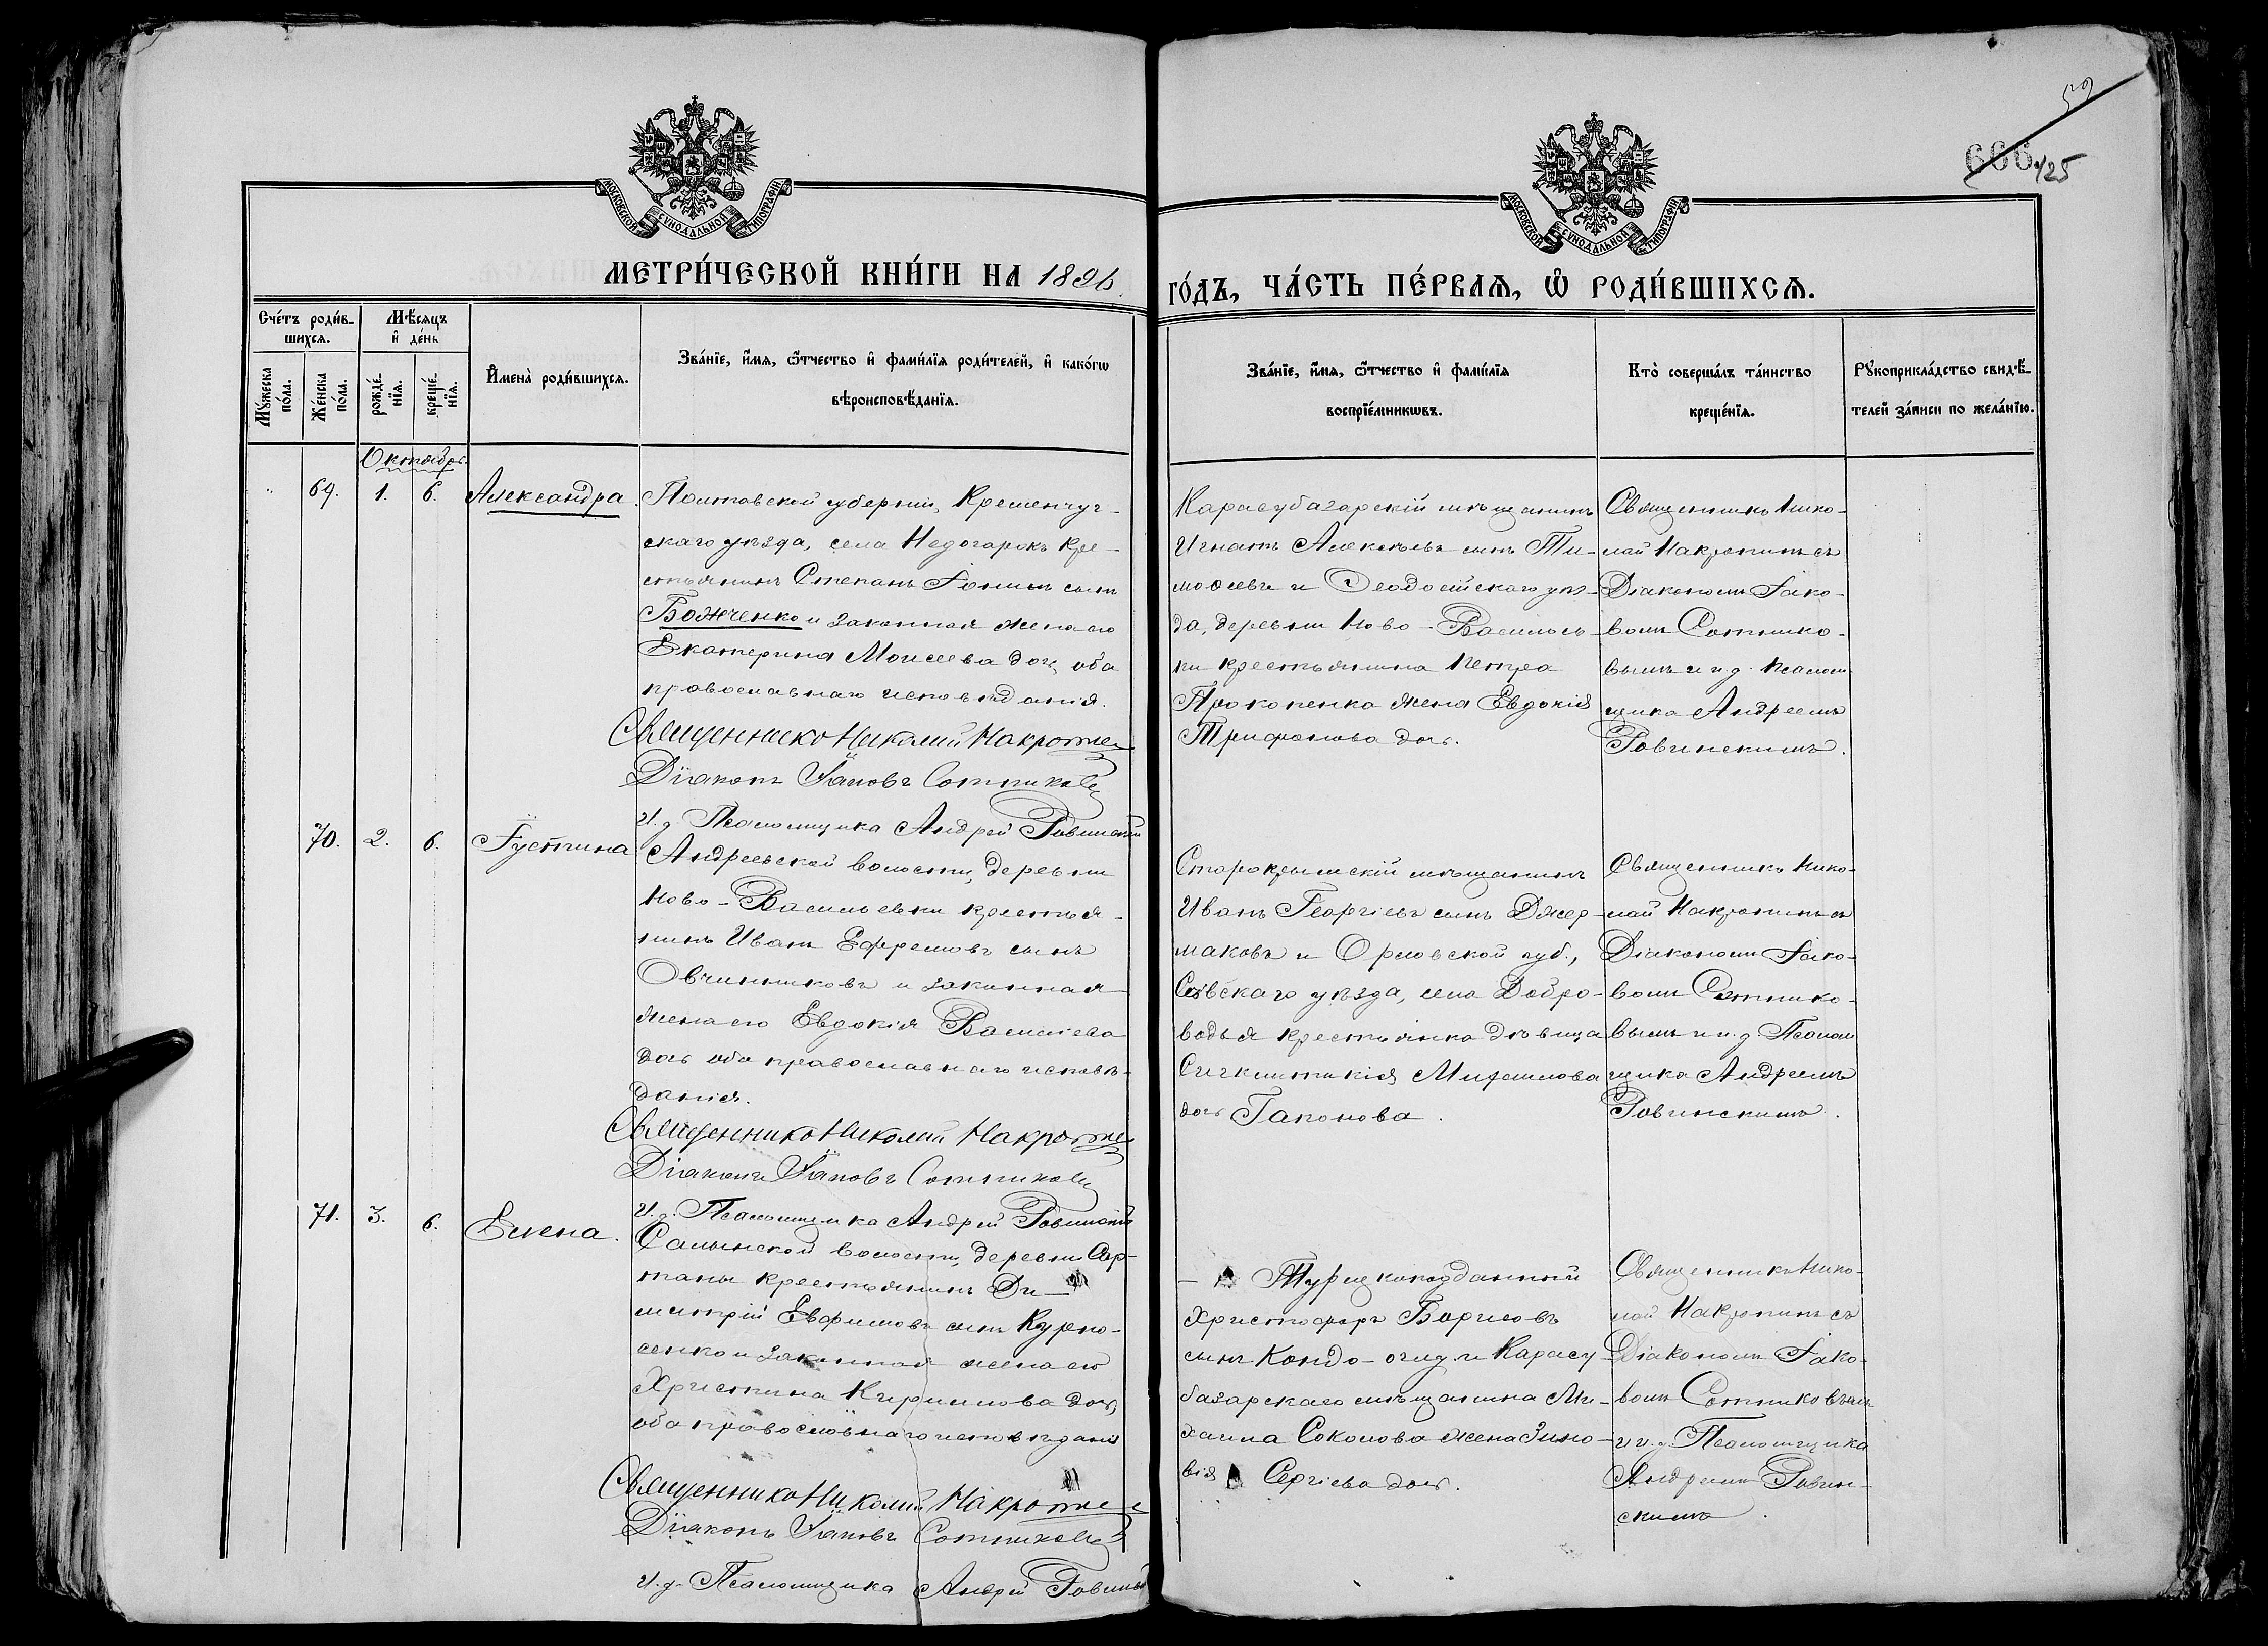 59
666 125
МОСКОВСКОЙ СѴНОДАЛЬНОЙ ТИПОГРАФІИ
МОСКОВСКОЙ СѴНОДАЛЬНОЙ ТИПОГРАФІИ
МЕТРИ́ЧЕСКОЙ КНИ́ГИ НА 1896
ГО́ДЪ, ЧА́СТЬ ПЕ́РВАѦ, Ѡ҆ РОДИ́ВШИХСѦ.
Сче́тъ роди́в-
шихсѧ.
Мꙋ́жеска
по́ла.
Же́нска
по́ла.
Мѣ́сѧцъ
и҆ де́нь
рожде́-
нїѧ.
креще́-
нїѧ.
И҆мена̀ роди́вшихсѧ.
Зва́нїе, и҆́мѧ, ѻ҆́тчество и҆ фами́лїѧ роди́телей, и҆ како́гѡ
вѣроисповѣ́данїѧ.
Зва́нїе, и҆́мѧ, ѻ҆́тчество и҆ фами́лїѧ
воспрїе́мникѡвъ.
Кто̀ соверша́лъ та́инство
креще́нїѧ.
Рꙋкоприкла́дство свидѣ́-
телей за́писи по жела́нїю.
Октябрь
69. 1. 6. Александра
Полтавской губерніи, Кременчуг-
скаго уѣзда, села Недогарокъ кре-
стьянинъ Степанъ Іонинъ сынъ
Божченко и законная жена его
Екатерина Моисеева дочь, оба
православнаго исповѣданія.
Священникъ Николай
Діаконъ Іаковъ Сотниковъ
И. д. Псаломщика Андрей Ровинскій
Карасубазарскій мѣщанинъ
Игнатъ Алексѣевъ сынъ Ти-
моѳеевъ и Ѳеодосійскаго уѣз-
да, деревни Ново-Васильев-
ки крестьянина Петра
Прокопенка жена Евдокія
Трифонова дочь.
Священникъ Нико-
лай съ
Діакономъ Іако-
вомъ Сотнико-
вымъ и и. д. псалом-
щика Андреемъ
Ровинскимъ.
70. 2. 6. Іустина
Андреевской волости, деревни
Ново-Васильевки крестья-
нинъ Иванъ Ефремовъ сынъ
Овчинниковъ и законная
жена его Евдокія Васильева
дочь оба православнаго исповѣ-
данія.
Священникъ Николай
Діаконъ Іаковъ Сотниковъ
И. д. Псаломщика Андрей Ровинскій
Старокрымскій мѣщанинъ
Иванъ Георгіевъ сынъ Джер-
маковъ и Орловской губ.,
Сѣвскаго уѣзда, села Добро-
водья крестьянка дѣвица
дочь Гапонова.
Священникъ Нико-
лай съ
Діакономъ Іако-
вомъ Сотнико-
вымъ и и. д. Псалом
щика Андреемъ
Ровинскимъ.
71. 3. 6. Елена.
Салынской волости, деревни Сар-
таны крестьянинъ Ди-
митрій Евфимовъ сынъ Курно-
сенко и законная жена его
Христина Кириллова дочь,
оба православнаго исповѣданія
Священникъ Николай
Діаконъ Іаковъ Сотниковъ
И. д. Псаломщика Андрей Ровинскій
Турецкоподданный
Христофоръ Борисовъ
сынъ Кондо-оглу и Карасу
базарскаго мѣщанина Ми-
хаила Соколова жена Зино-
вія Сергіева дочь.
Священникъ Нико-
лай съ
Діакономъ Іако-
вомъ Сотниковымъ
и и. д. Псаломщика
Андреемъ Ровин-
скимъ.